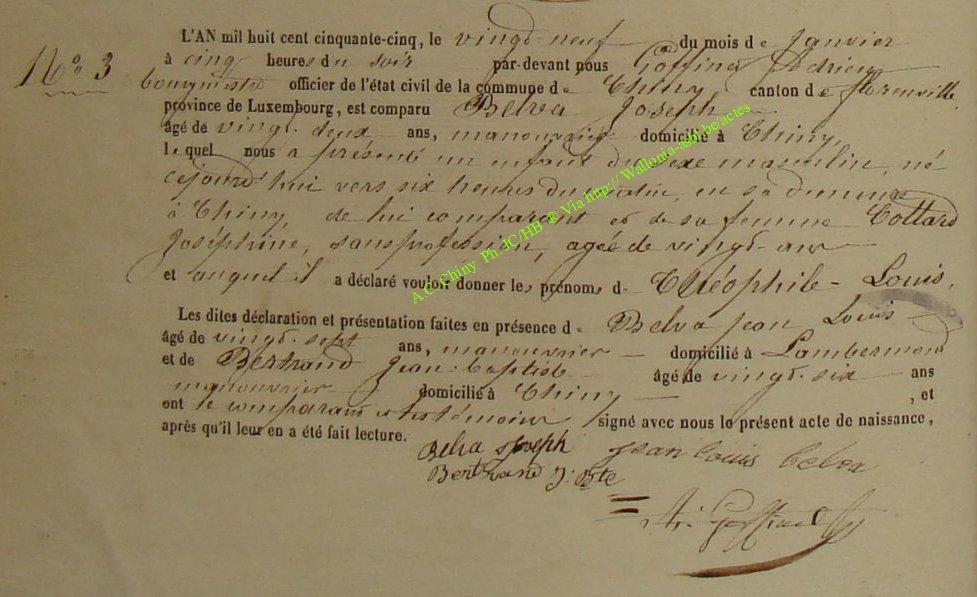 N° 3
L'AN mil huit cent cinquante-cinq, le vingt-neuf du mois de Janvier
à cinq heures du soir par-devant nous Goffinet Adrien
bourgmestre officier de l'état civil de la commune de Chiny, canton de florenville
province de Luxembourg, est comparu Belva Joseph
âgé de vingt-deux ans, manouvrier domicilié à Chiny,
lequel nous a présenté un enfant du sexe masculin, né
cejourd'hui vers six heures du matin, en sa demeure
à Chiny, de lui comparant et de sa femme Collard
Joséphine, sans profession, agée de vingt-ans
et auquel il a déclaré vouloir donner les prénoms de Théophile-Louis,
Les dites déclaration et présentation faites en présence de Belva Jean Louis
âgé de vingt-sept ans, manouvrier domicilié à Lambermont
et de Bertrand Jean-Baptiste âgé de vingt-six ans
manouvrier domicilié à Chiny, et
ont le comparant et les témoins signé avec nous le présent acte de naissance,
après qu'il leur en a été fait lecture.
Belva Joseph Jean Louis belva
Bertrand J: Bte
Ad: Goffinet
A C Chiny Ph. JC/HB ® Via http:// Wallonia-asbl.be/actes